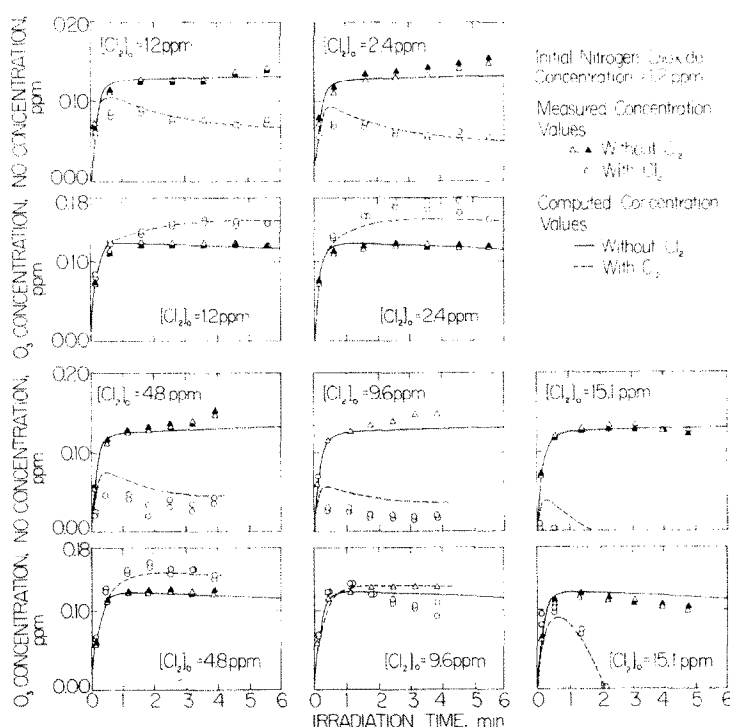 O₃ CONCENTRATION, NO CONCENTRATION,
ppm ppm
0.20
0.10
0.00
[Cl₂]₀=1.2ppm
[Cl₂]₀=2.4ppm
Initial Nitrogen Dioxide
Concentration =1.2 ppm
Measured Concentration
Values
Without Cl₂
With Cl₂
Computed Concentration
Values
Without Cl₂
With Cl₂
0.18
0.10
0.00
[Cl₂]₀=1.2ppm
[Cl₂]₀=2.4ppm
0 1 2 3 4 5 6
0 1 2 3 4 5 6
O₃ CONCENTRATION, NO CONCENTRATION,
ppm ppm
0.20
0.10
0.00
[Cl₂]₀=4.8ppm
[Cl₂]₀=9.6ppm
[Cl₂]₀=15.1ppm
0.18
0.10
0.00
[Cl₂]₀=4.8ppm
[Cl₂]₀=9.6ppm
[Cl₂]₀=15.1ppm
0 1 2 3 4 5 6
0 1 2 3 4 5 6
0 1 2 3 4 5 6
IRRADIATION TIME, min